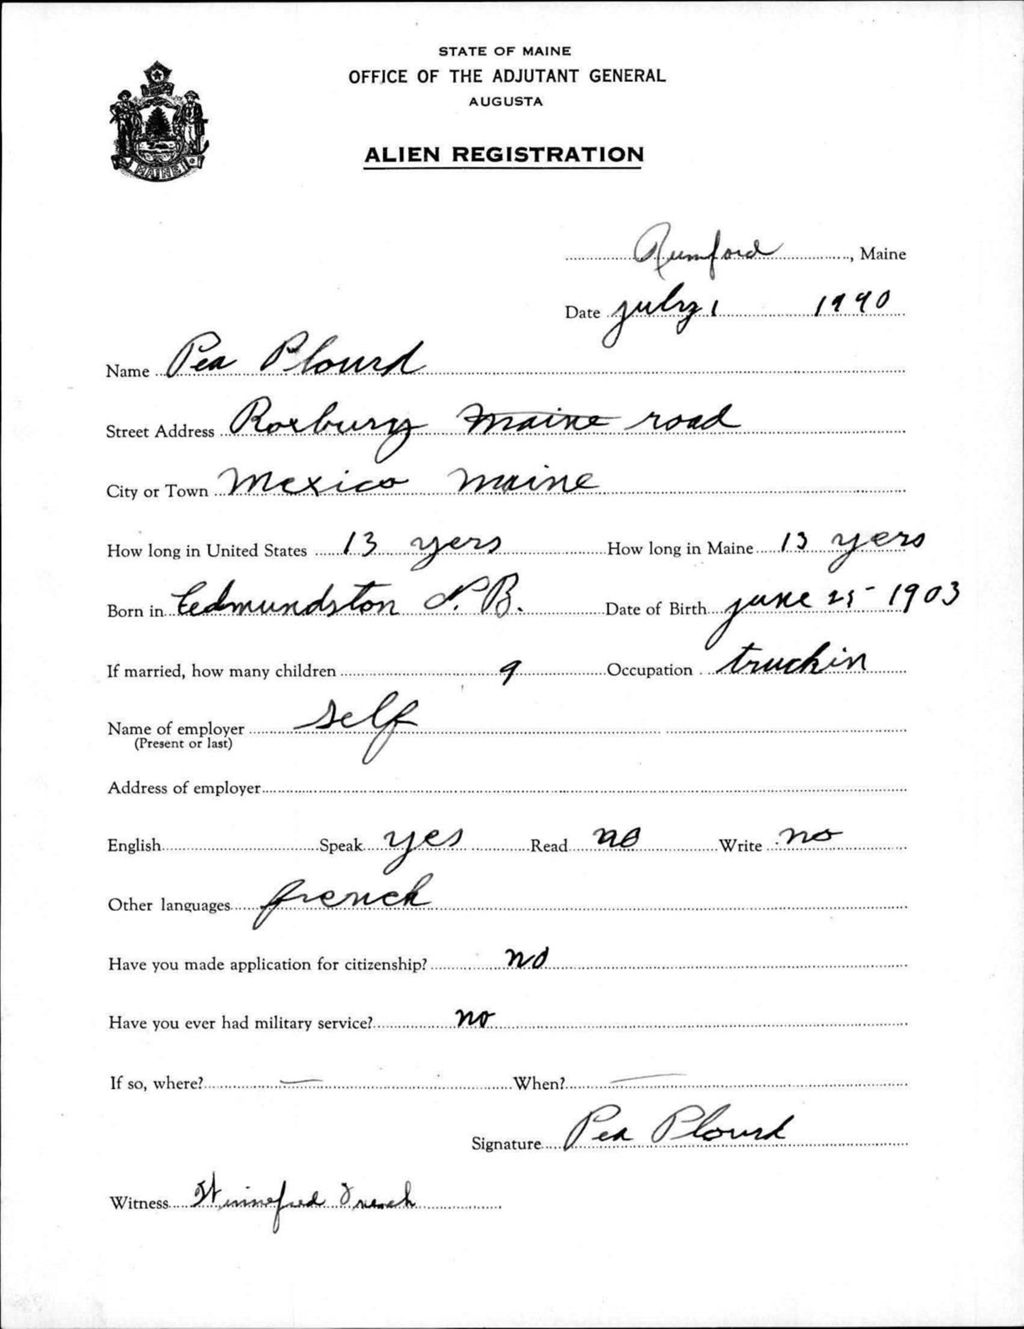 STATE OF MAINE
OFFICE OF THE ADJUTANT GENERAL
AUGUSTA
ALIEN REGISTRATION
MAINE
Rumford, Maine
Date july 1 1940
Name Pea Plourd
Street Address Roxbury Maine road
City or Town Mexico Maine
How long in United States 13 yers How long in Maine 13 yers
Born in Edmundston N.B. Date of Birth june 25 - 1903
If married, how many children 9 Occupation truckin
Name of employer self
(Present or last)
Address of employer
English Speak yes Read no Write no
Other languages french
Have you made application for citizenship? no
Have you ever had military service? no
If so, where? — When? —
Signature Pea Plourd
Witness Winnefred French